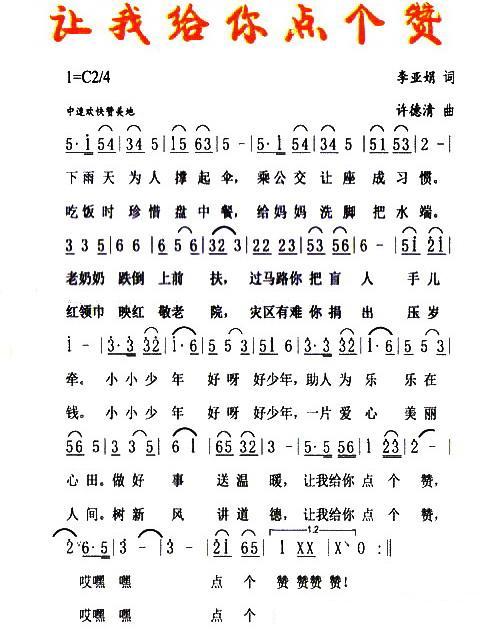 让我给你点个赞
1=C2/4 李亚娟 词
中速欢快赞美地 许德清 曲
5·i 54|34 5|i5 63|5 -|34 5|i i6|5i 53|2 -|
下雨天 为人 撑起 伞，乘公交 让座 成习 惯。
吃饭时 珍惜 盘中 餐，给妈妈 洗脚 把水 端。
3 3 5|6 6 |6 5 6|32 3|22 23|53 56|6 -|5i 2i|
老奶奶 跌倒 上前 扶，过马路你 把盲 人 手儿
红领巾 映红 敬老 院，灾区有难你 捐 出 压岁
i -|3·3 32|i·6|5 5 3|5i 6|3·3 32|i·6|5 5 3|
牵。小小少 年 好呀 好少年，助人为 乐 乐在
钱。小小少 年 好呀 好少年，一片爱 心 美丽
56 5|3 3 5|6·i|65 32|3 -|5·5 56|i 23|2 -|
心田。做好 事 送温 暖，让我给你 点个 赞，
人间。树新 风 讲道 德，让我给你 点个 赞，
2 6·5|3 -|3 -|2i 65|i XX|X O :‖
1.2
哎嘿 嘿 点 个 赞 赞赞 赞！
哎嘿 嘿 点 个